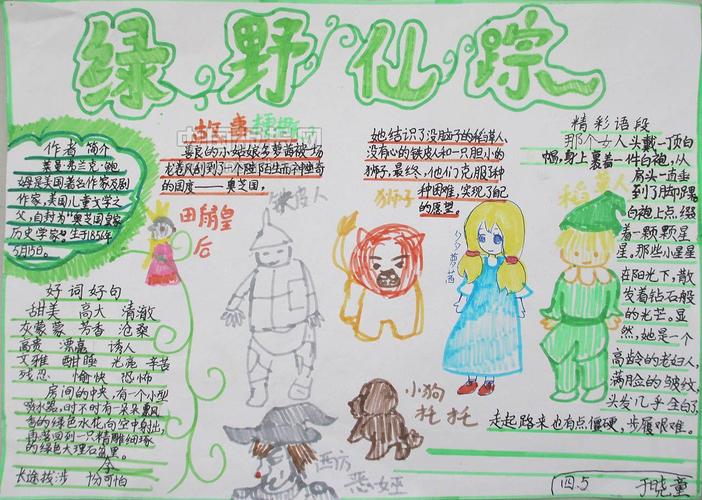 绿野仙踪
作者简介
莱曼·弗兰克·鲍
姆是美国著名作家及剧
作家,美国儿童文学之
父,自封为“奥芝国皇家
历史学家”。生于1856年
5月15日。
故事梗概
善良的小姑娘多萝茜被一场
龙卷风刮到了一个陌生而神奇
的国度——奥芝国。
她结识了没脑子的稻草人
没有心的铁皮人和一只胆小的
狮子,最终,他们克服种
种困难,实现了自己
的愿望。
精彩语段
那个女人头戴一顶白
帽,身上裹着一件白袍,从
肩头一直垂
到了脚踝。
白袍上点缀
着一颗颗星
星。那些小星星
在阳光下,散
发着钻石般
的光芒。显
然,她是一个
高龄的老妇人,
满脸的皱纹,
头发几乎全白了,
走起路来也有点僵硬,步履艰难。
田鼠皇
后
铁皮人
狮子
多萝茜
稻草人
小狗
托托
西方
恶女巫
好词好句
甜美 高大 清澈
灰蒙蒙 芳香 沧桑
高贵 漂亮 诱人
文雅 酣睡 光亮 辛苦
残忍 愉快 恐怖
房间的中央,有一个小型
喷水器,时不时有一朵朵飘
香的绿色水花,向空中射出,
再落回到一只精雕细琢
的绿色大理石盆里。
长途跋涉 十分可怕
四.5 于晓童